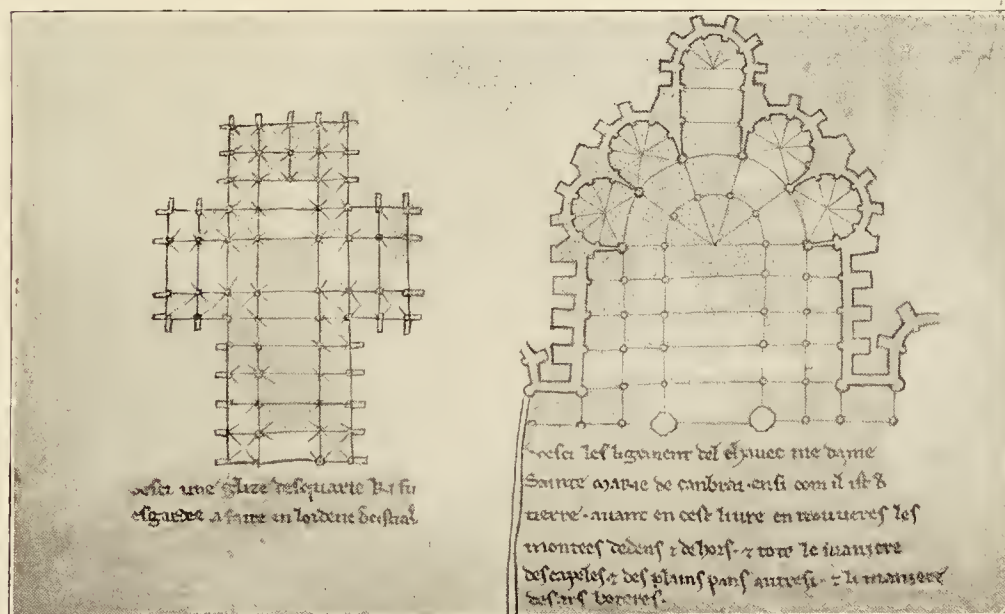 vesci une glize desquarie ki fu
esgardee a faire en lordene
vesci les ligement del chavec me dame
Sainte marie de canbrai · ensi com il ist &
tierre · avant en cest livre en trouveres les
montees dedens ⁊ dehors · ⁊ tote le maniere
des capeles ⁊ des plains pans autresi · ⁊ li maniere
des ars boteres ·